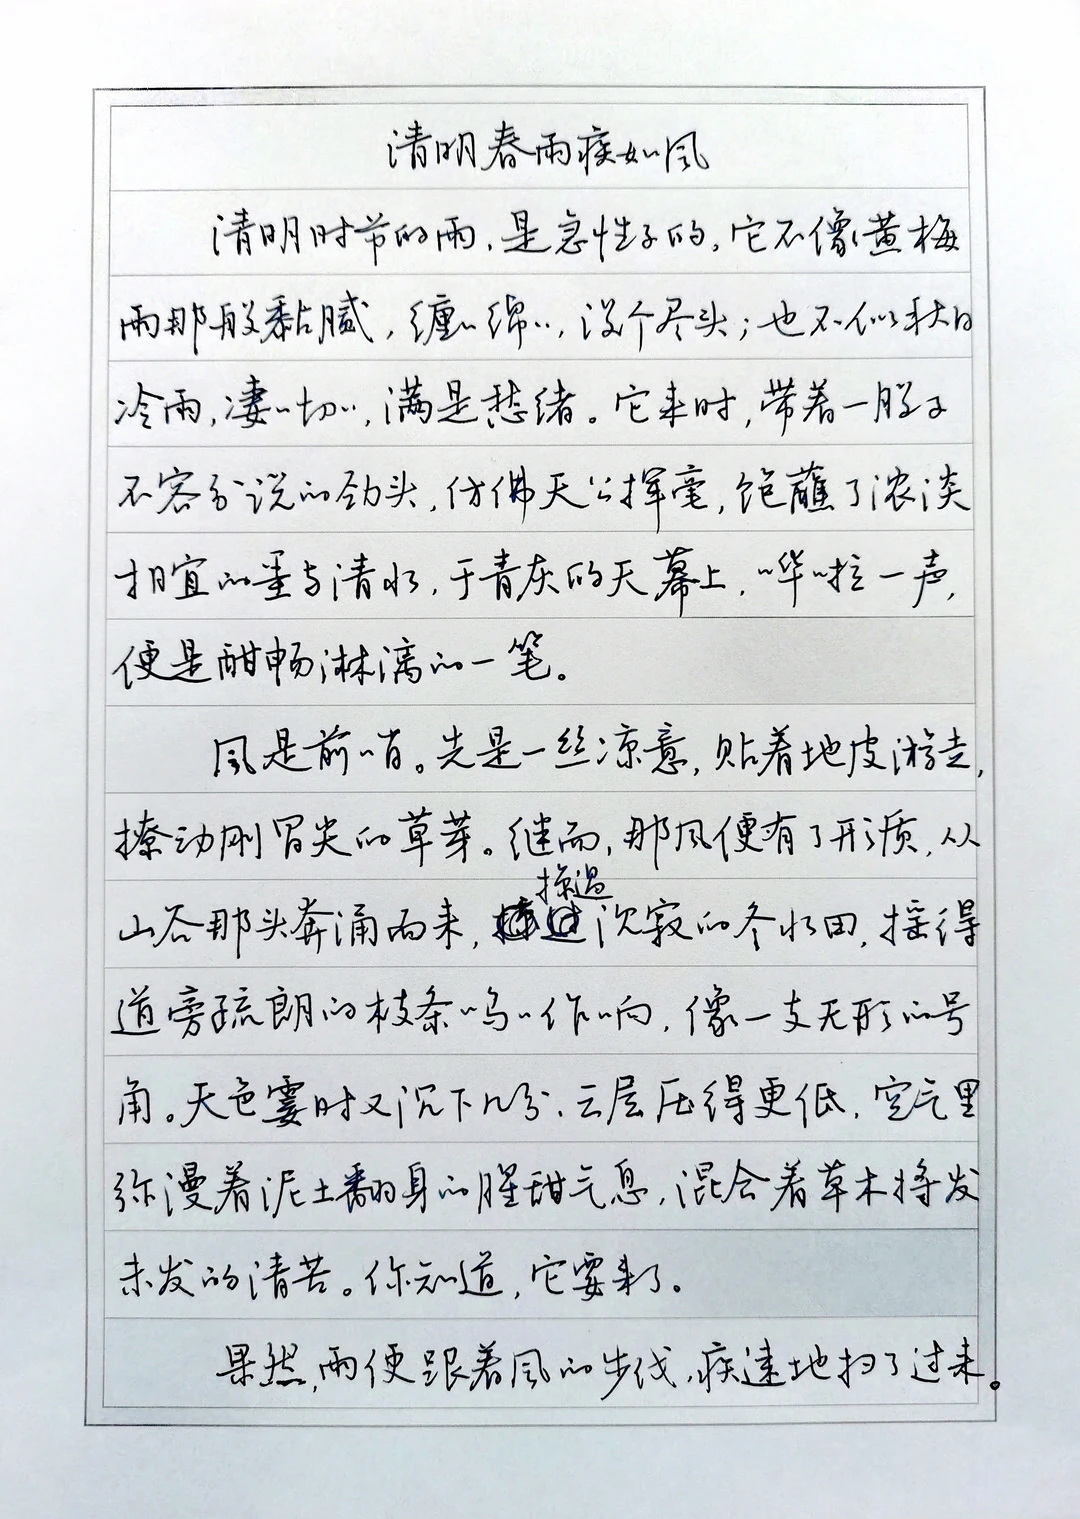 清明春雨疾如风
清明时节的雨，是急性子的。它不像黄梅
雨那般黏腻，缠缠绵绵，没个尽头；也不似秋日
冷雨，凄凄切切，满是愁绪。它来时，带着一股子
不容分说的劲头，仿佛天公挥毫，饱蘸了浓淡
相宜的墨与清水，于青灰的天幕上，哗啦一声，
便是酣畅淋漓的一笔。
风是前哨。先是一丝凉意，贴着地皮游走，
撩动刚冒尖的草芽。继而，那风便有了形质，从
山谷那头奔涌而来，掠过沉寂的冬水田，摇得
道旁疏朗的枝条呜呜作响，像一支无形的号
角。天色霎时又沉下几分，云层压得更低，空气里
弥漫着泥土翻身的腥甜气息，混合着草木将发
未发的清苦。你知道，它要来了。
果然，雨便跟着风的步伐，疾速地扫了过来。